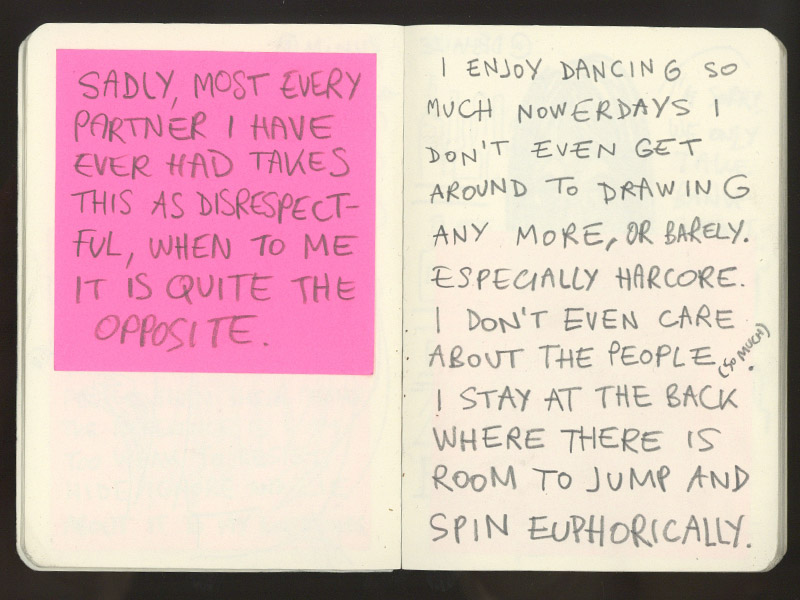 SADLY, MOST EVERY
PARTNER I HAVE
EVER HAD TAKES
THIS AS DISRESPECT-
FUL, WHEN TO ME
IT IS QUITE THE
OPPOSITE.
I ENJOY DANCING SO
MUCH NOWERDAYS I
DON'T EVEN GET
AROUND TO DRAWING
ANY MORE, OR BARELY.
ESPECIALLY HARCORE.
I DON'T EVEN CARE
ABOUT THE PEOPLE (SO MUCH).
I STAY AT THE BACK
WHERE THERE IS
ROOM TO JUMP AND
SPIN EUPHORICALLY.